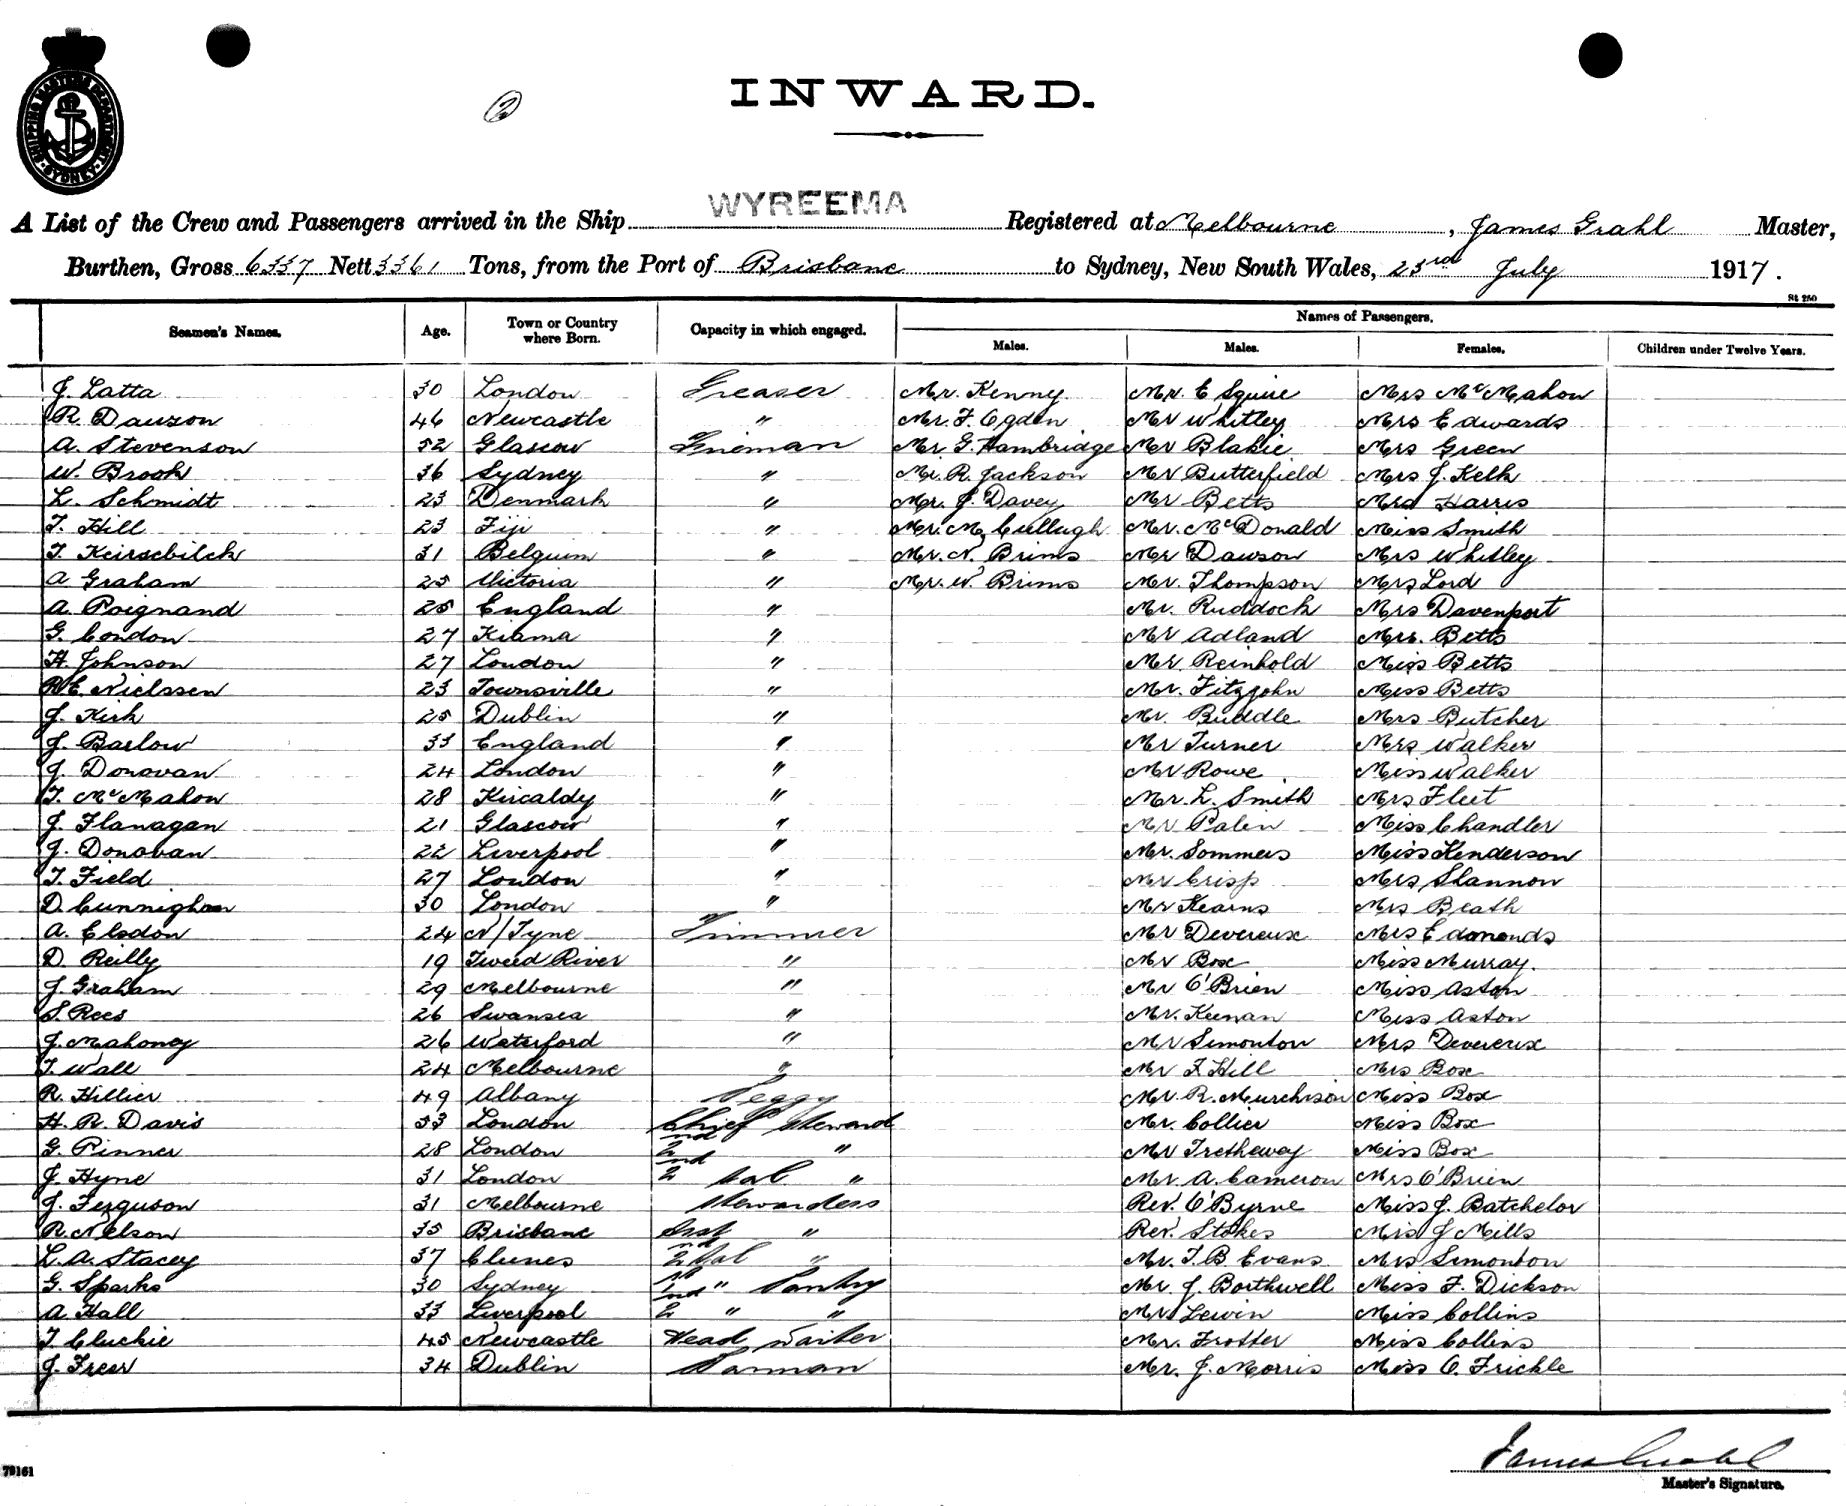 SHIPPING MASTERS DEPARTMENT SYDNEY
2
INWARD.
A List of the Crew and Passengers arrived in the Ship WYREEMA Registered at Melbourne, James Grahl Master,
Burthen, Gross 6337 Nett 3361 Tons, from the Port of Brisbane to Sydney, New South Wales, 23rd July 1917.
St 250
Seamen's Names. Age. Town or Country where Born. Capacity in which engaged. Names of Passengers.
Males. Males. Females. Children under Twelve Years.
J. Latta 30 London Greaser Mr. Kenny Mr. E Squire Mrs McMahon
R. Dawson 46 Newcastle " Mr. F. Ogden Mr Whitley Mrs Edwards
A. Stevenson 52 Glascow Fireman Mr. G. Hambridge Mr Blakie Mrs Green
W. Brook 36 Sydney " Mr. R. Jackson Mr Butterfield Mrs J. Kelk
L. Schmidt 23 Denmark " Mr. J. Davey Mr Betts Mrs Harris
T. Hill 23 Fiji " Mr. Mc Cullugh Mr. McDonald Miss Smith
T. Keirsebilck 31 Belguim " Mr. N. Brims Mr Dawson Mrs Whitley
A Graham 25 Victoria " Mr. W. Brims Mr. Thompson Mrs Lord
A. Poignand 25 England " Mr. Ruddock Mrs Davenport
G. Condon 27 Kiama " Mr Adland Mrs. Betts
H. Johnson 27 London " Mr Reinhold Miss Betts
R.E. Nielssen 23 Townsville " Mr. Fitzjohn Miss Betts
J. Kirk 25 Dublin " Mr. Buddle Mrs Butcher
J. Barlow 33 England " Mr Turner Mrs Walker
J. Donovan 24 London " Mr Rowe Miss Walker
T. McMahon 28 Kircaldy " Mr. L. Smith Mrs Fleet
J. Flanagan 21 Glascow " Mr Palin Miss Chandler
J. Donovan 22 Liverpool " Mr. Sommers Miss Henderson
T. Field 27 London " Mr Crisp Mrs Shannon
D. Cunnighan 30 London " Mr Kearns Mrs Beath
A. Elsdon 24 N/Tyne Trimmer Mr Devereux Mrs Edmonds
D. Reilly 19 Tweed River " Mr Box Miss Murray.
J. Graham 29 Melbourne " Mr O'Brien Miss Aston
S. Rees 26 Swansea " Mr. Keenan Miss Aston
J. Mahoney 26 Waterford " Mr Simonton Mrs Devereux
T. Wall 24 Melbourne " Mr F. Hill Mrs Box
R. Hillier 49 Albany Peggy Mr. R. Murchison Miss Box
H. R. Davis 53 London Chief Steward Mr. Collier Miss Box
G. Pinner 28 London 2nd " Mr Trethewey Miss Box
J. Hyne 31 London 2nd Sal " Mr. A. Cameron Mrs O'Brien
J. Ferguson 31 Melbourne Stewardess Rev. O'Byrne Miss J. Batchelor
R. Nelson 35 Brisbane Asst " Rev. Stokes Miss J Mills
L. A. Stacey 37 Clunes 2nd Sal " Mr. T. B. Evans Mrs Simonton
G. Sparks 30 Sydney 1st " Pantry Mr. J. Borthwell Miss F. Dickson
A Hall 33 Liverpool 2nd " " Mr Lewin Miss Collins
T. Cluckie 45 Newcastle Head Waiter Mr. Trotter Miss Collins
J. Freer 34 Dublin Barman Mr. J. Morris Miss O. Frickle
James Grahl
Master's Signature.
79161